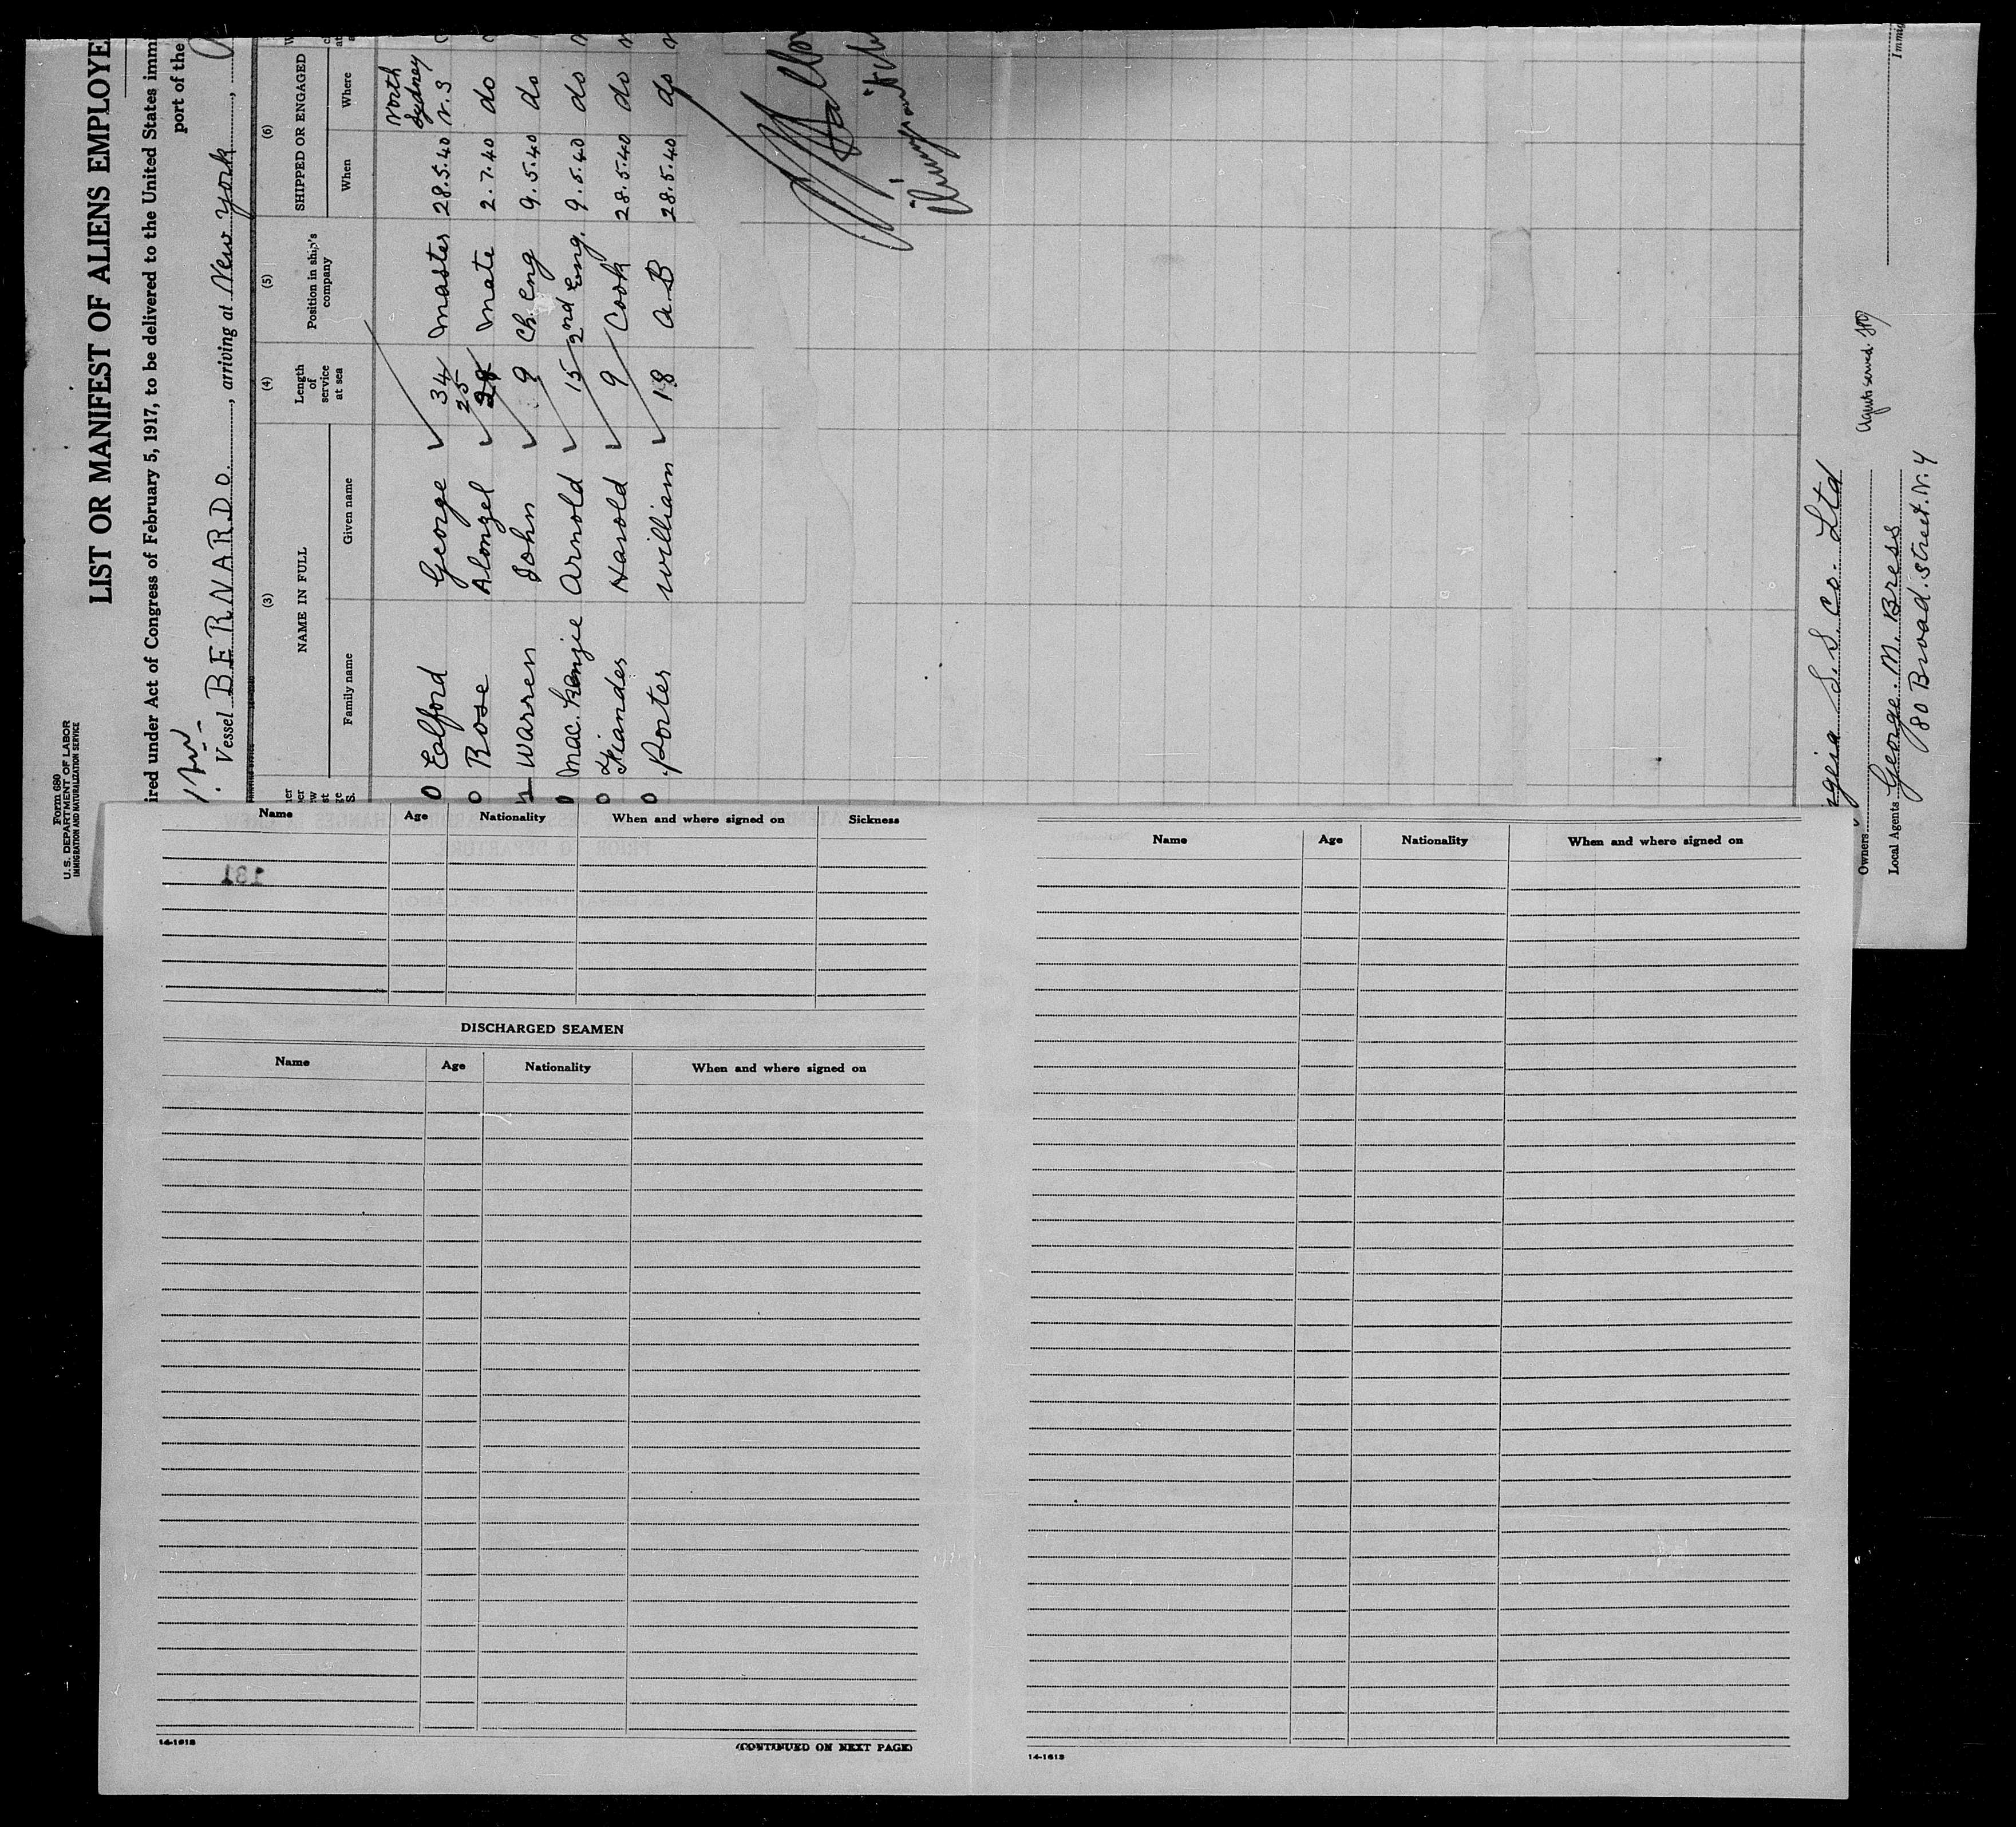 Form 680
U.S. DEPARTMENT OF LABOR
IMMIGRATION AND NATURALIZATION SERVICE
LIST OR MANIFEST OF ALIENS EMPLOYE
ired under Act of Congress of February 5, 1917, to be delivered to the United States immi
port of the
Vessel BERNARDO, arriving at New York,
(3) (4) (5) (6)
NAME IN FULL Length of service at sea Position in ship's company SHIPPED OR ENGAGED
Family name Given name When Where
North Sydney
0 Ealford George 34 Master 28.5.40 N.S
25
0 Rose Alonzel 28 Mate 2.7.40 do
Warren John 9 Ch. Eng 9.5.40 do
0 Mac. Kenzie Arnold 15 2nd Eng. 9.5.40 do
0 Harold 9 Cook 28.5.40 do
0 Porter William 18 A.B 28.5.40 do
Owners geia S.S. Co. Ltd
Local Agents George. M. Bress
80 Broad. Street. N. Y
Agents served
Immig
Name Age Nationality When and where signed on Sickness
131
DISCHARGED SEAMEN
Name Age Nationality When and where signed on
14-1613
(CONTINUED ON NEXT PAGE)
Name Age Nationality When and where signed on
14-1613